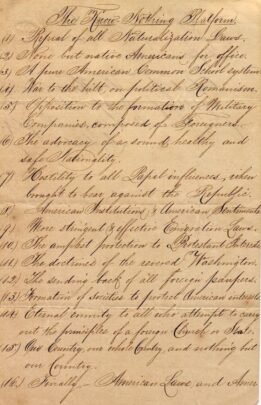 The Know Nothing Platform.
(1) Repeal of all Naturalization Laws.
(2) None but native Americans for office.
(3) A pure American Common School system
(4) War to the hilt, on political Romanism.
(5) Opposition to the formation of Military
Companies, composed of Foreigners.
(6) The advocacy of a sound, healthy and
safe Nationality.
(7) Hostility to all Papal influences, when
brought to bear against the Republic.
(8) American Institutions & American Sentiments
(9) More stringent & effective Emigration Laws.
(10) The amplest protection to Protestant Interests
(11) The doctrines of the revered Washington.
(12) The sending back of all foreign paupers.
(13) Formation of societies to protect American interests
(14) Eternal enmity to all who attempt to carry
out the principles of a foreign Church or State.
(15) Our Country, our whole Country, and nothing but
our Country.
(16) Finally,- American Laws, and Amer